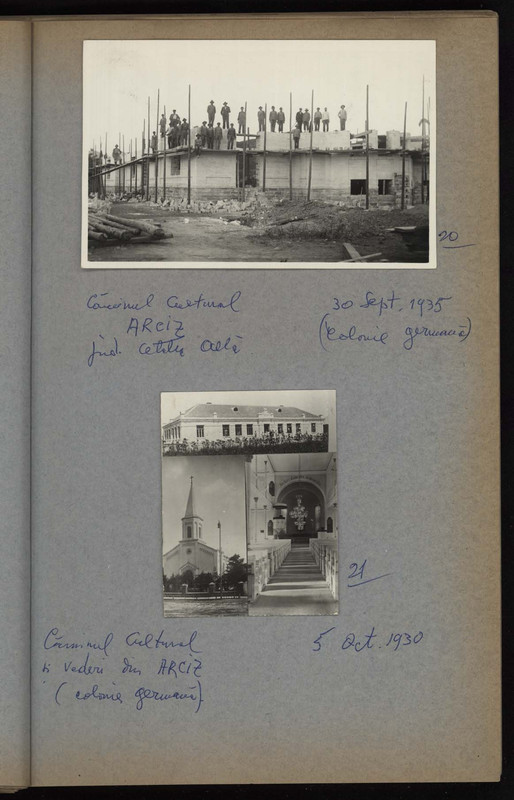 20
Căminul Cultural
ARCIZ
jud. Cetatea Albă
30 Sept. 1935
(colonie germană)
21
Căminul Cultural
și vederi din ARCIZ
(colonie germană)
5 Oct. 1930